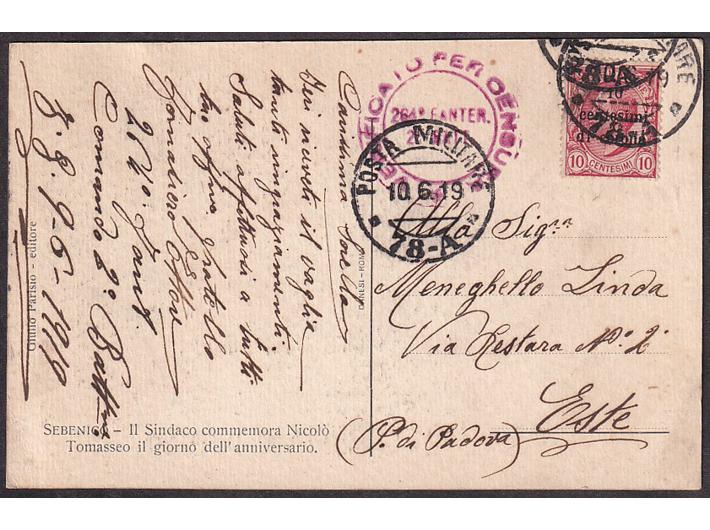 Carissima Sorella
Ieri ricevetti il vaglia
tanti ringraziamenti.
Saluti affettuosi a tutti
tuo aff.mo fratello
Ettore
264° Fant.
Comando 2° Batt.
9-6-1919
Giulio Parisio - editore
SEBENICO - Il Sindaco commemora Nicolò
Tomasseo il giorno dell'anniversario.
DANESI - ROMA
VERIFICATO PER CENSURA
264° FANTER.
POSTA MILITARE
10.6.19
78-A
POSTA MILITARE
78-A
10
centesimi
di corona
10 CENTESIMI 10
Alla Sigra
Meneghello Linda
Via Restara N° 2
Este
(P. di Padova)